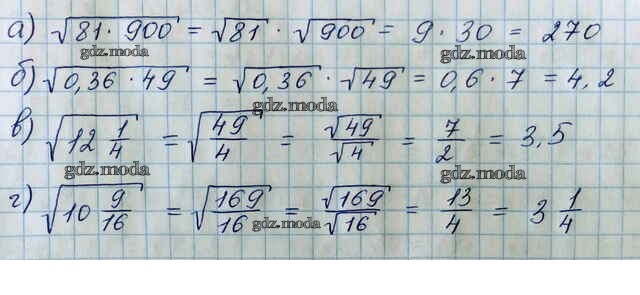 а) √81 · 900 = √81 · √900 = 9 · 30 = 270
gdz.moda gdz.moda
б) √0,36 · 49 = √0,36 · √49 = 0,6 · 7 = 4,2
gdz.moda
в) √12 1/4 = √49/4 = √49/√4 = 7/2 = 3,5
gdz.moda gdz.moda
г) √10 9/16 = √169/16 = √169/√16 = 13/4 = 3 1/4
gdz.moda